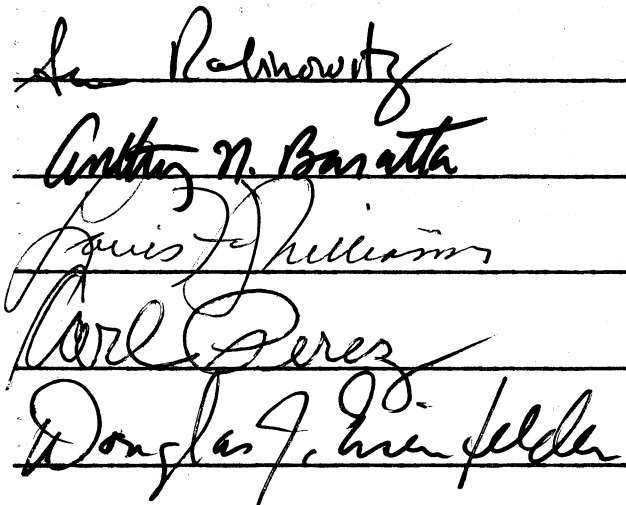 Rabinowitz
Anthony N. Baratta
Louis F. Williams
Carl Perez
Douglas J.